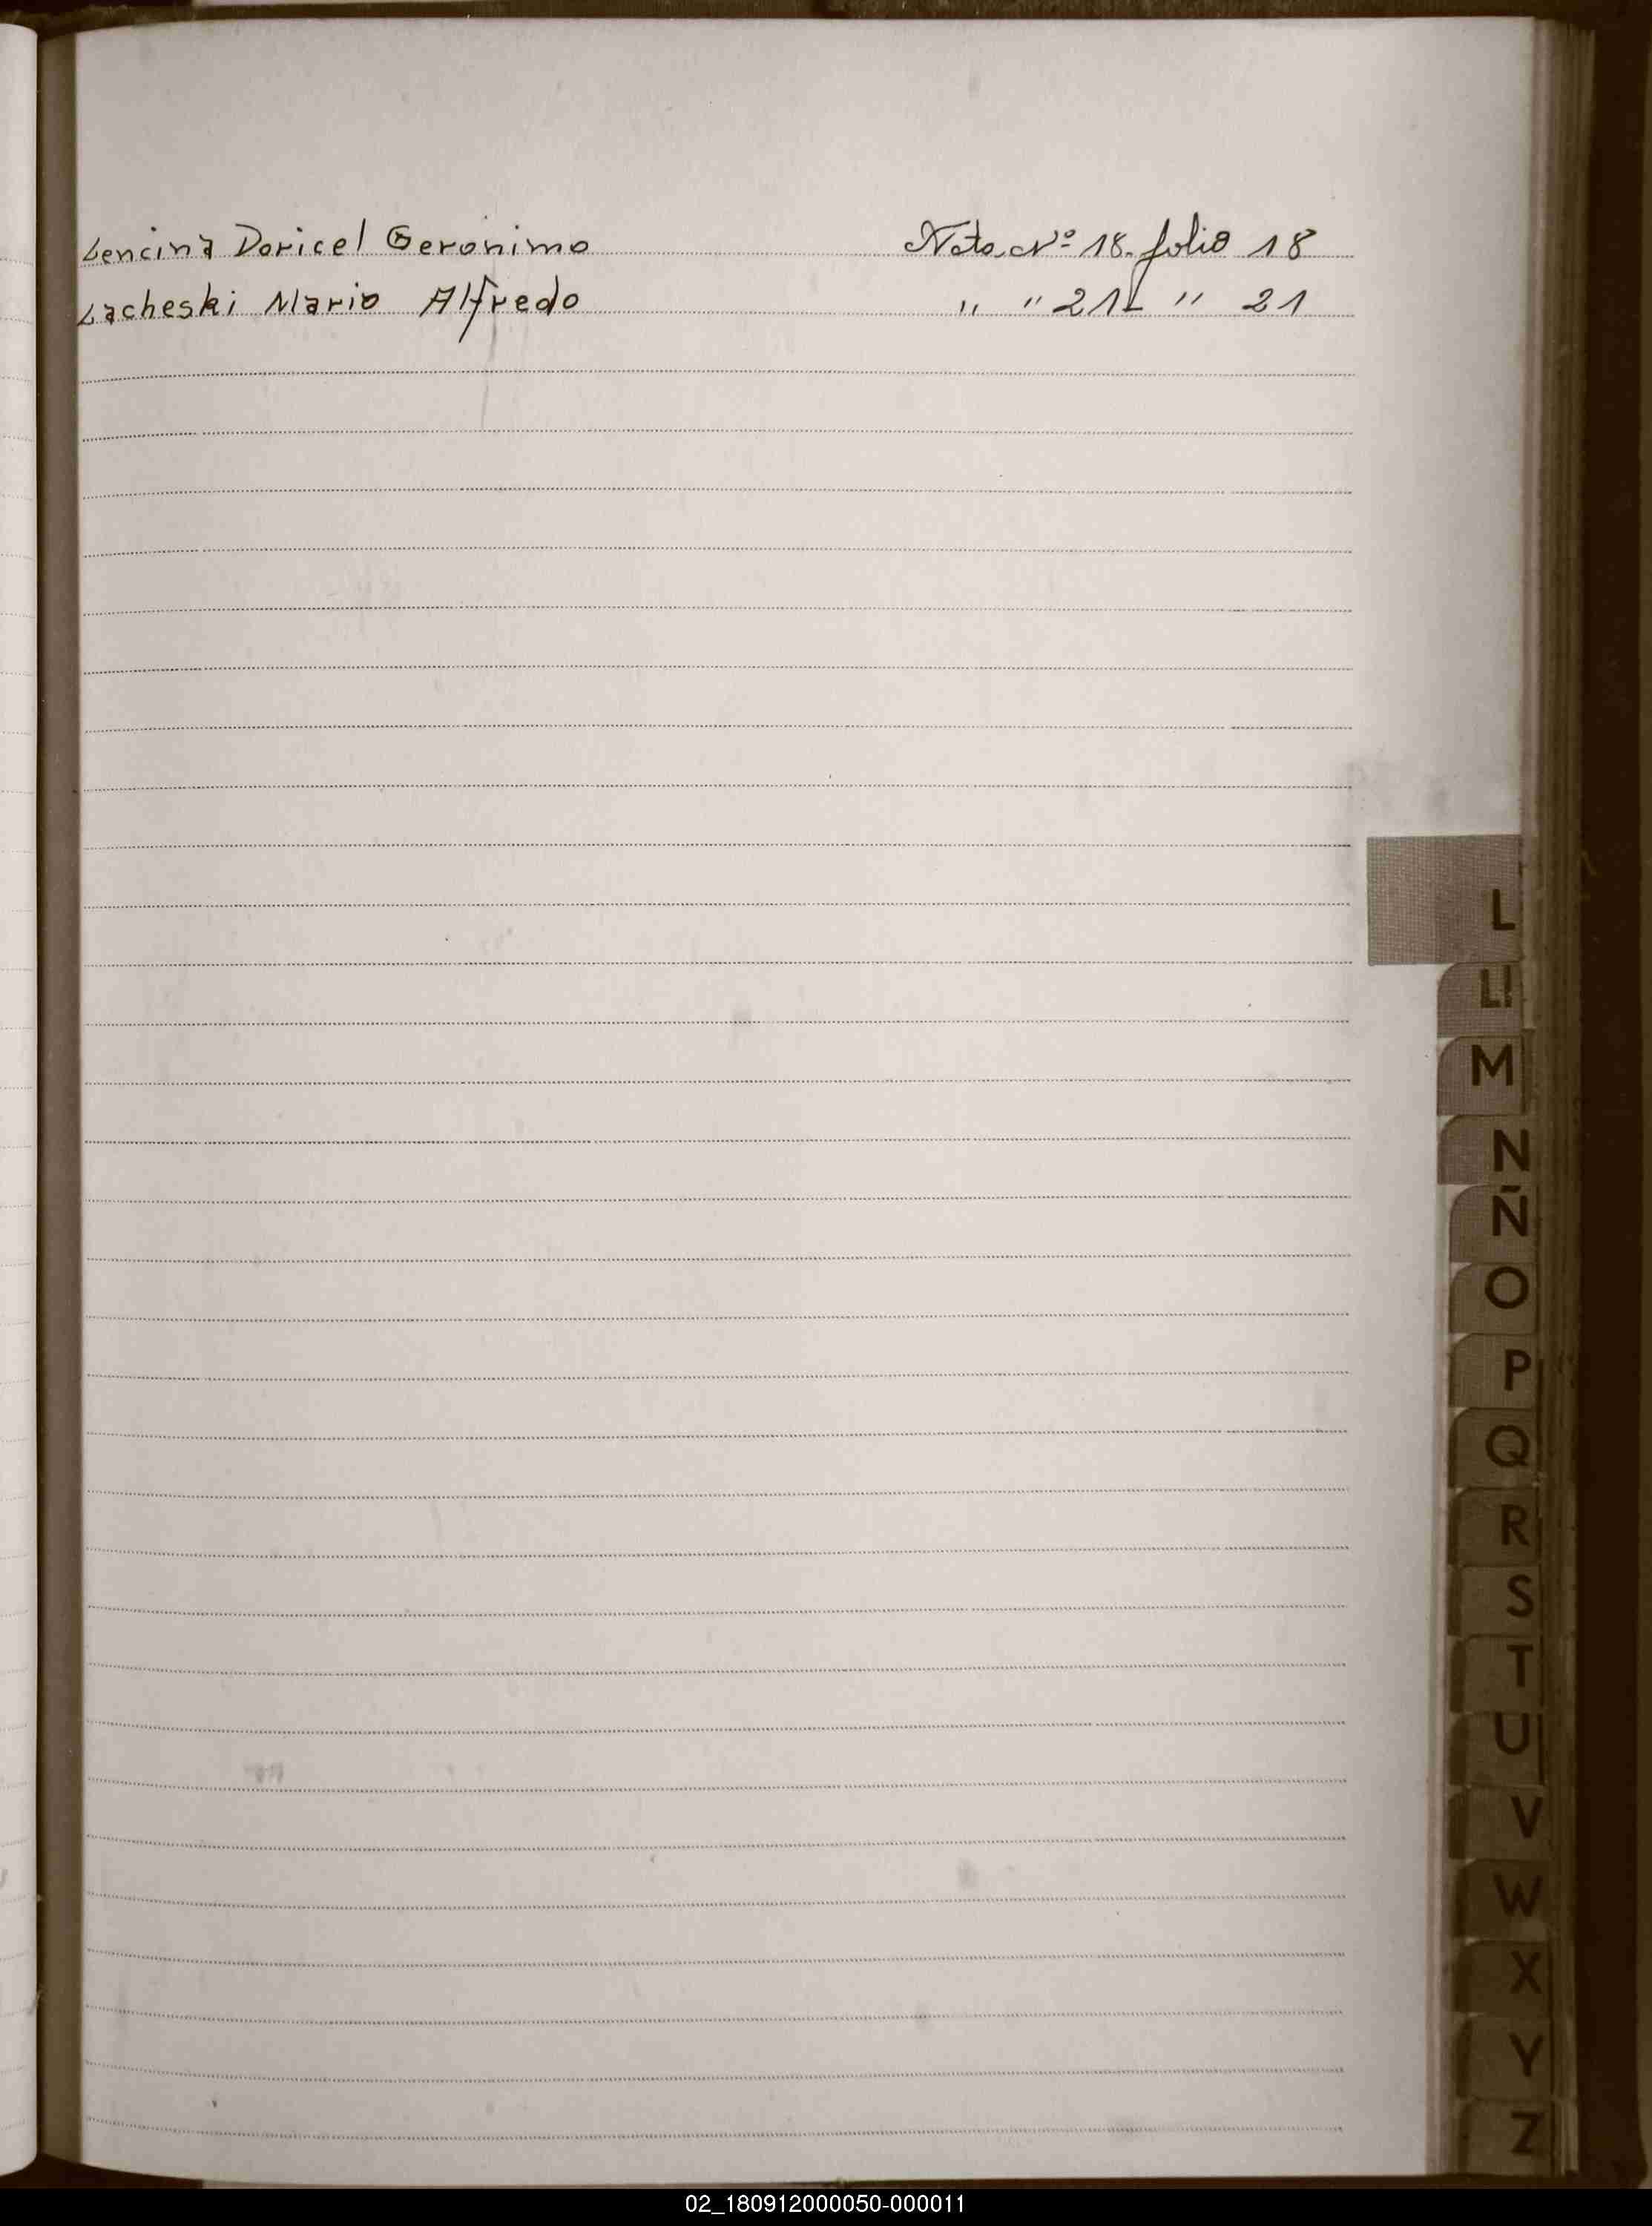 Lencina Doricel Geronimo Nota Nº 18. folio 18
Lacheski Mario Alfredo " " 21 " 21
L
Ll
M
N
Ñ
O
P
Q
R
S
T
U
V
W
X
Y
Z
02_180912000050-000011